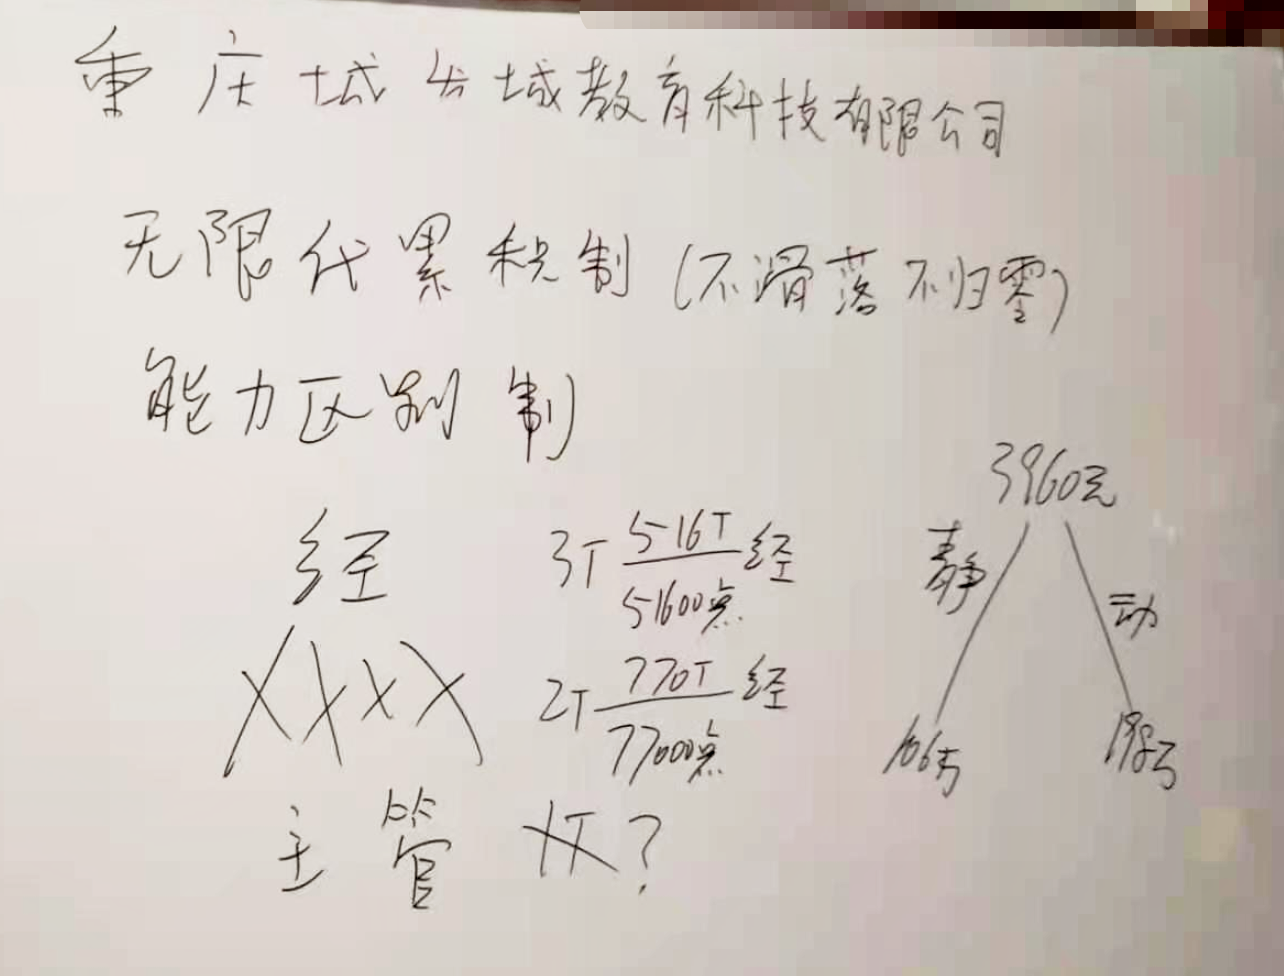 重庆城长城教育科技有限公司
无限代累积制(不滑落不归零)
能力区别制
3960元
经
3T 5-16T 经
51600点
静 动
2T 770T 经
77000点
106万 198万
主管 ?